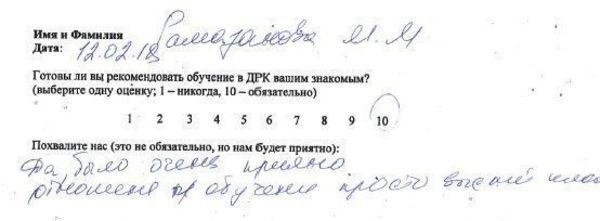 Имя и Фамилия Рамазанова М.М
Дата: 12.02.18
Готовы ли вы рекомендовать обучение в ДРК вашим знакомым?
(выберите одну оценку; 1 – никогда, 10 – обязательно)
1 2 3 4 5 6 7 8 9 10
Похвалите нас (это не обязательно, но нам будет приятно):
Да, было очень приятно
отношение обучение просто высший клас